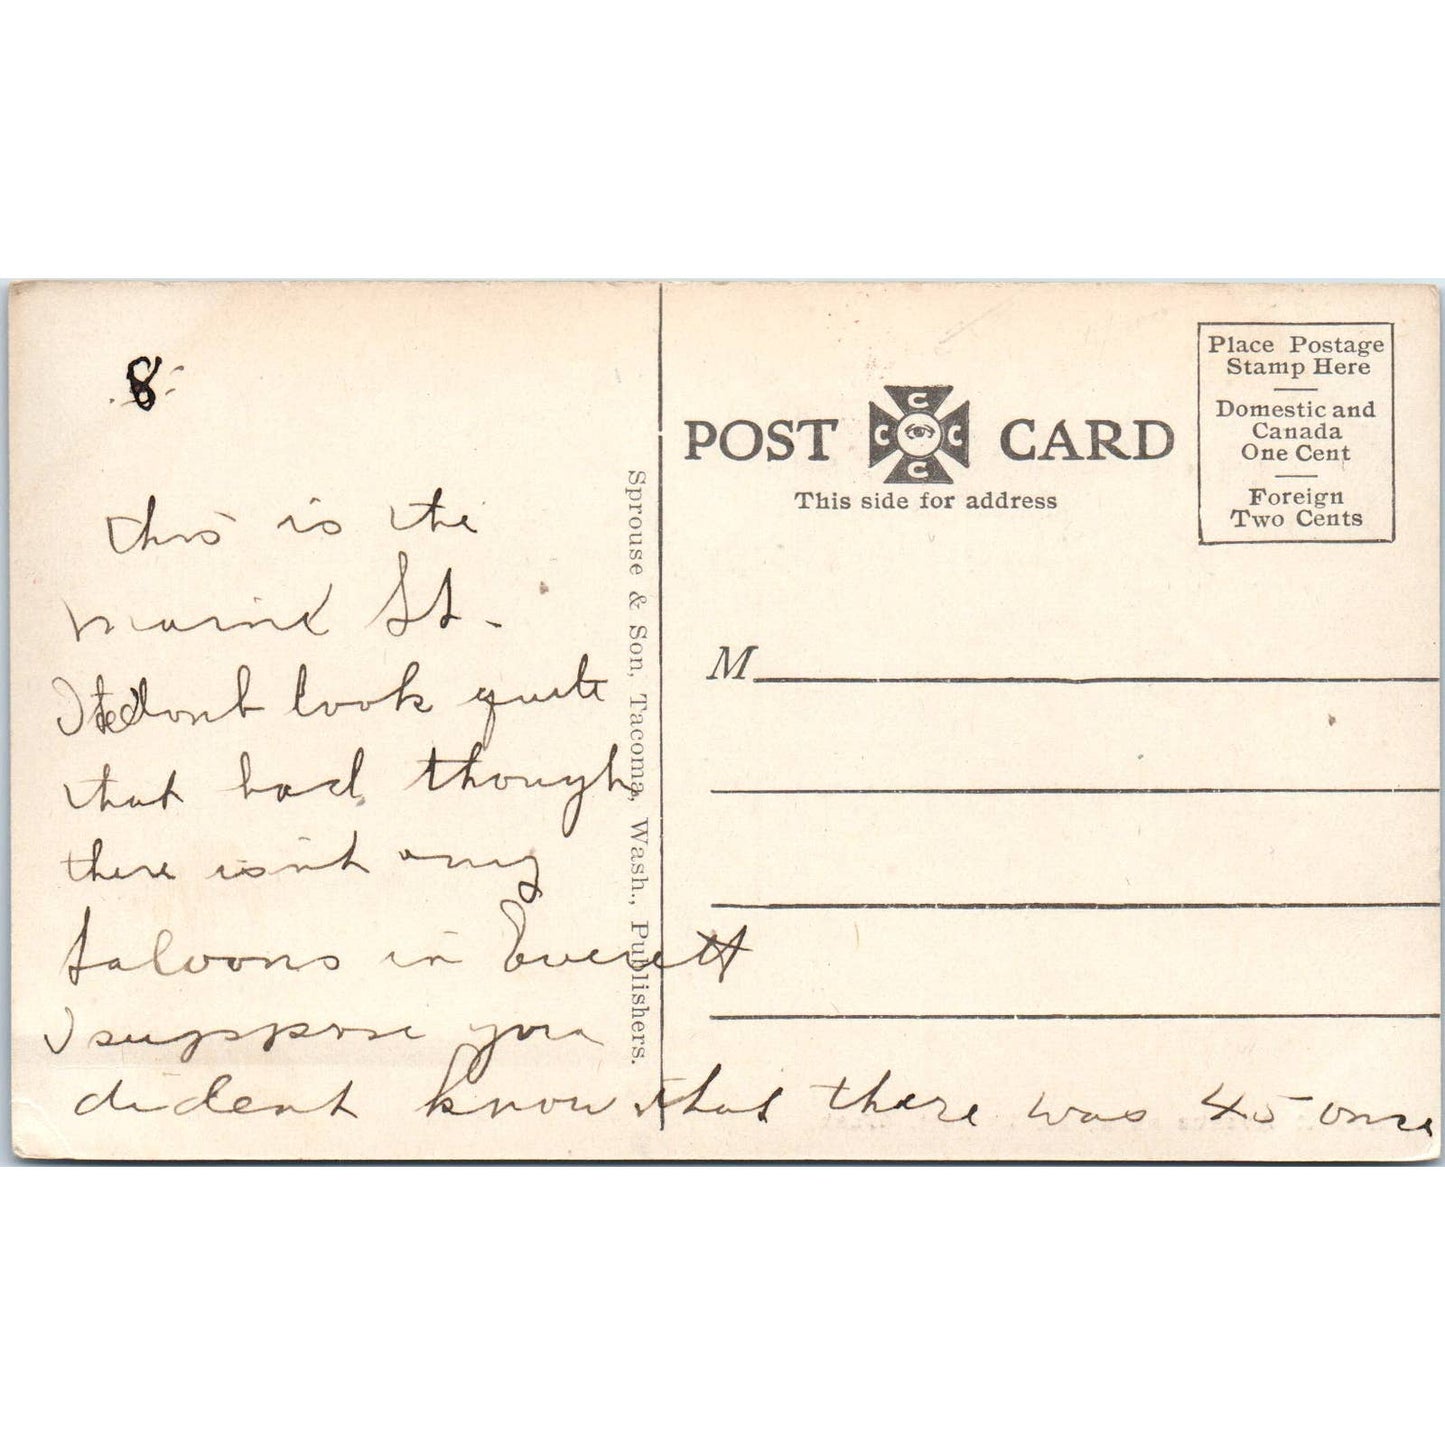 8
this is the
St.
dont look quite
that bad though
there isn't any
saloons in Everett
I suppose you
dident know that there was 45 once
Sprouse & Son, Tacoma, Wash., Publishers.
POST CARD
C
C C
C
This side for address
Place Postage
Stamp Here
Domestic and
Canada
One Cent
Foreign
Two Cents
M